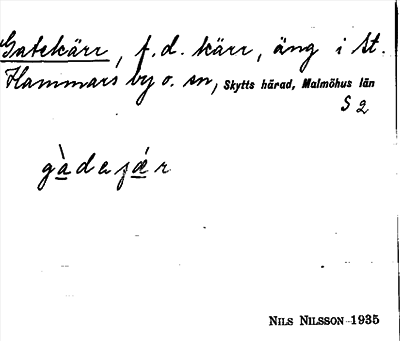 Gatekärr, f.d. kärr, äng i St.
Hammars by o. sn, Skytts härad, Malmöhus län
S 2
gàdeʃǽr
NILS NILSSON 1935